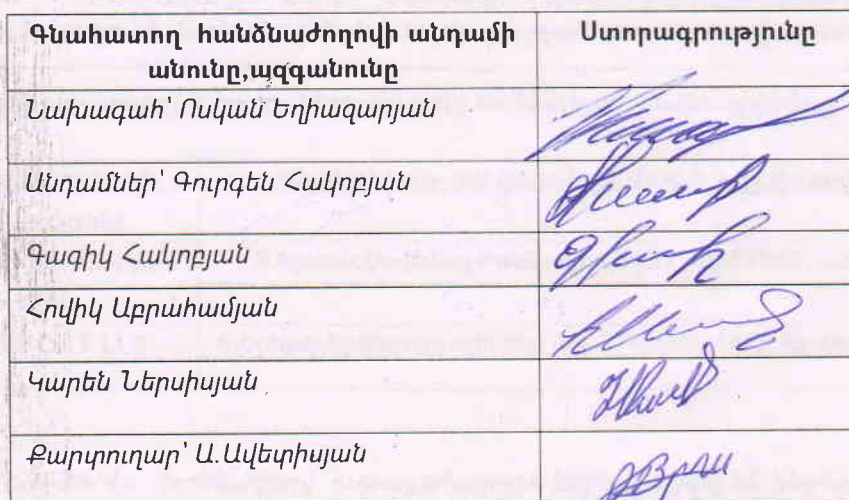 Գնահատող հանձնաժողովի անդամի
անունը,ազգանունը
Ստորագրությունը
Նախագահ՝ Ոսկան Եղիազարյան
Անդամներ՝ Գուրգեն Հակոբյան
Գագիկ Հակոբյան
Հովիկ Աբրահամյան
Կարեն Ներսիսյան
Քարտուղար՝ Ա.Ավետիսյան